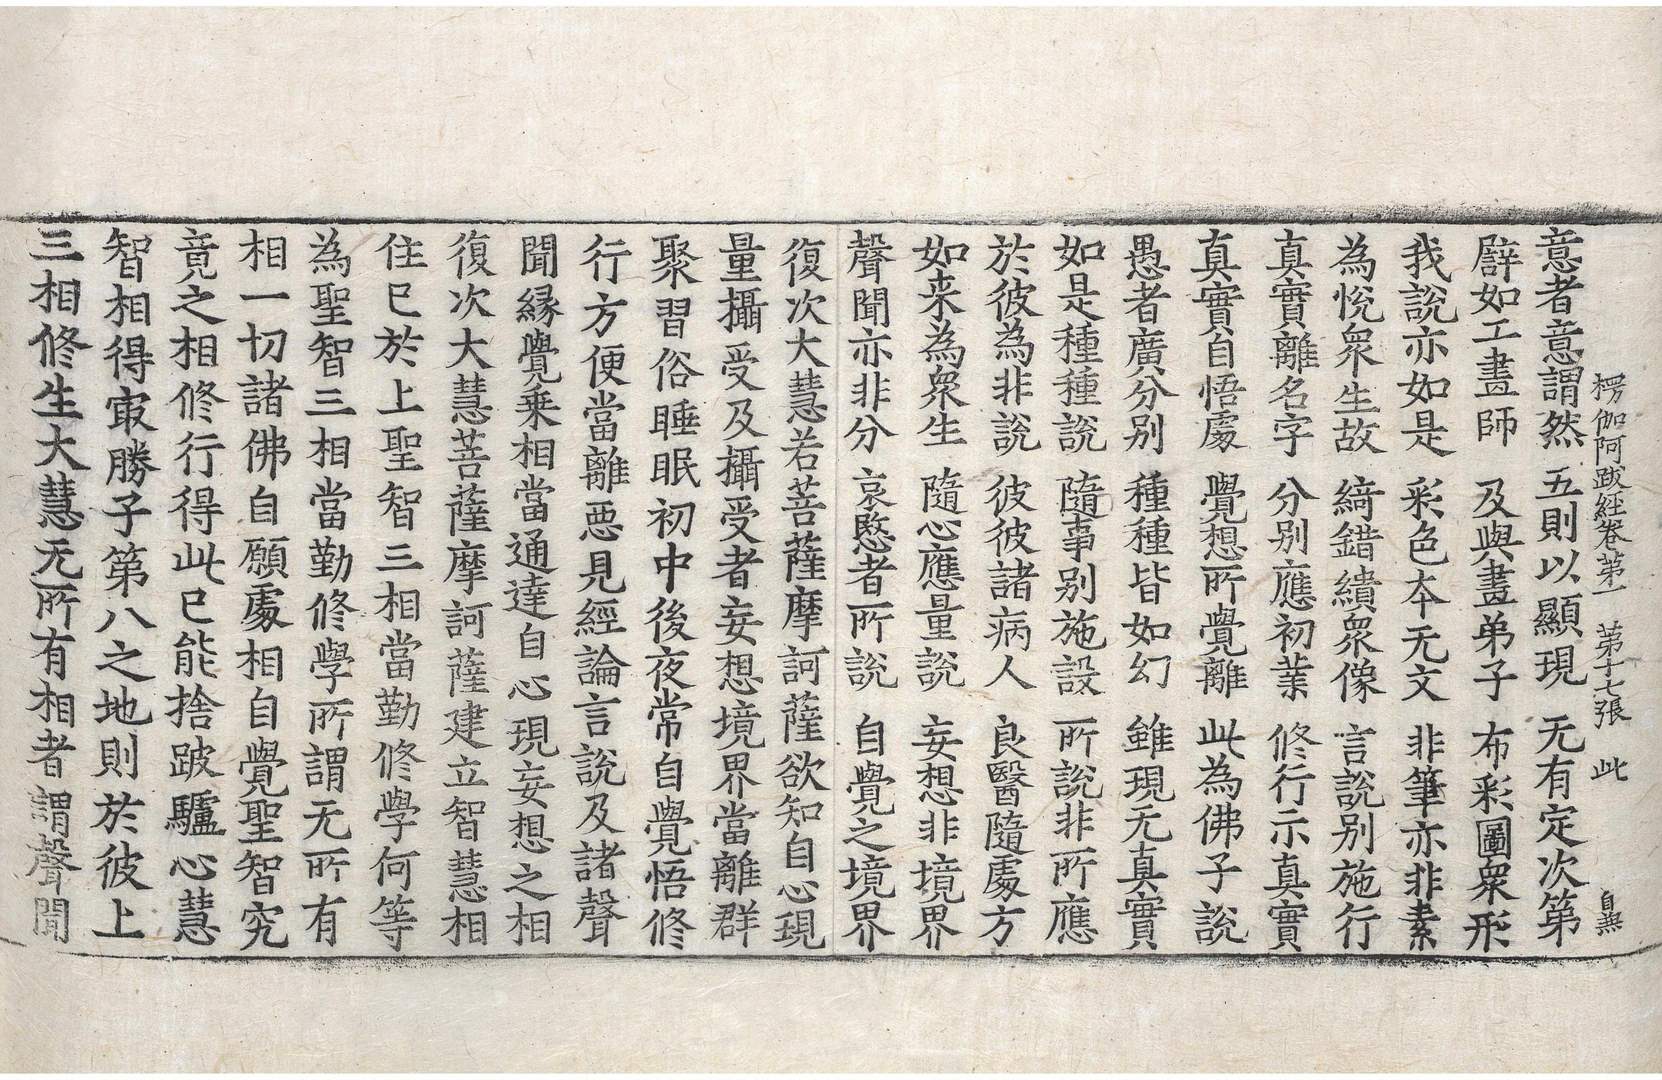 楞伽阿跋經卷第一　第十七張　此
意者意謂然　五則以顯現　无有定次第
譬如工畫師　及與畫弟子　布彩圖衆形
我說亦如是　彩色本无文　非筆亦非素
為悅衆生故　綺錯繢衆像　言說别施行
真實離名字　分别應初業　修行示真實
真實自悟處　覺想所覺離　此為佛子說
愚者廣分别　種種皆如幻　雖現无真實
如是種種說　隨事别施設　所說非所應
於彼為非說　彼彼諸病人　良醫隨處方
如来為衆生　隨心應量說　妄想非境界
聲聞亦非分　哀愍者所說　自覺之境界
復次大慧若菩薩摩訶薩欲知自心現
量攝受及攝受者妄想境界當離群
聚習俗睡眠初中後夜常自覺悟修
行方便當離惡見經論言說及諸聲
聞縁覺乗相當通達自心現妄想之相
復次大慧菩薩摩訶薩建立智慧相
住已於上聖智三相當勤修學何等
為聖智三相當勤修學所謂无所有
相一切諸佛自願處相自覺聖智究
竟之相修行得此已能捨跛驢心慧
智相得㝡勝子第八之地則於彼上
三相修生大慧无所有相者謂聲聞